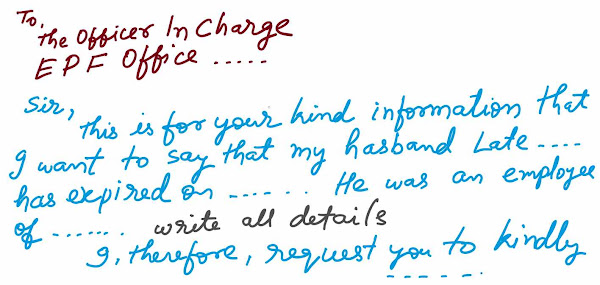 To,
The Officer In Charge
EPF Office .....
Sir,
This is for your kind information that
I want to say that my hasband Late ....
has expired on ...... He was an employee
of ....... write all details
I, therefore, request you to kindly
......